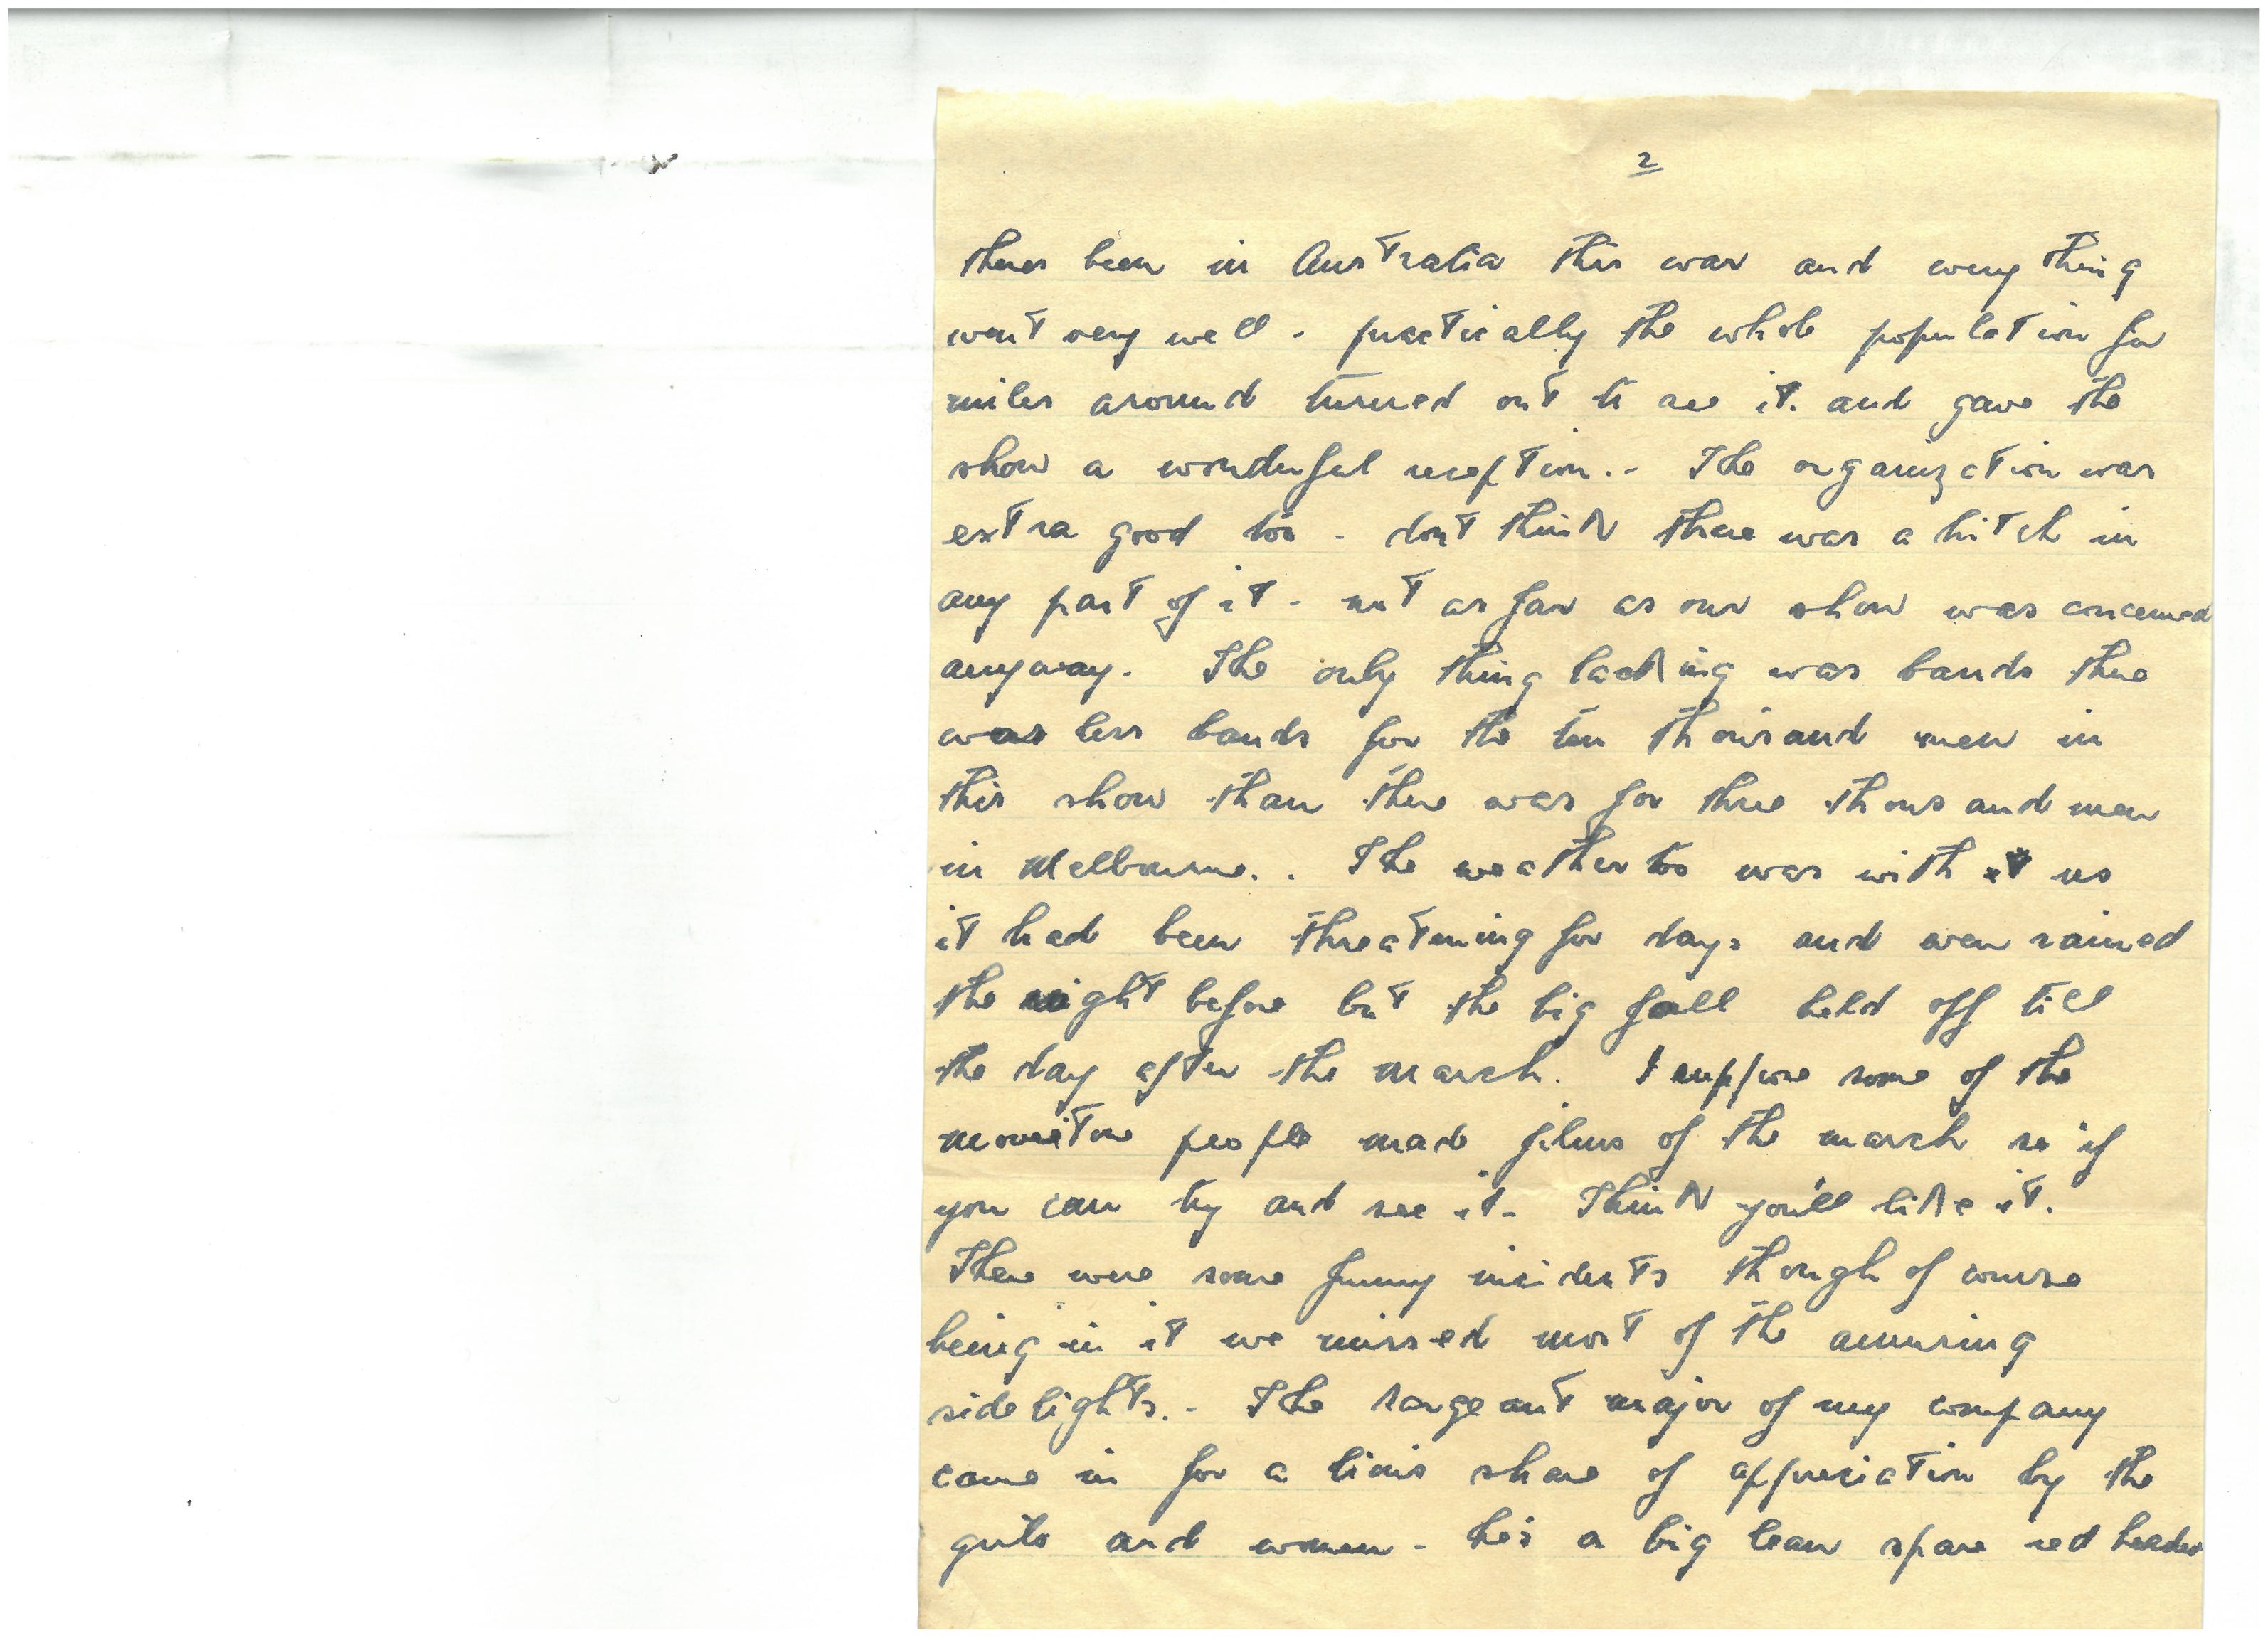 2
theres been in Australia this war and everything
went very well - practically the whole population for
miles around turned out to see it. and gave the
show a wonderful reception. - The organization was
extra good too - dont think there was a hitch in
any part of it - not as far as our show was concerned
anyway. The only thing lacking was bands there
was less bands for the ten thousand men in
this show than there was for three thousand men
in Melbourne. . The weather too was with us
it had been threatening for days and even rained
the night before but the big fall held off till
the day after the march. I suppose some of the
movietone people made films of the march so if
you can try and see it - Think you'll like it.
There were some funny incidents though of course
being in it we missed most of the amusing
sidelights. - The sargeant major of my company
came in for a lions share of appreciation by the
and women - he's a big lean spare red header